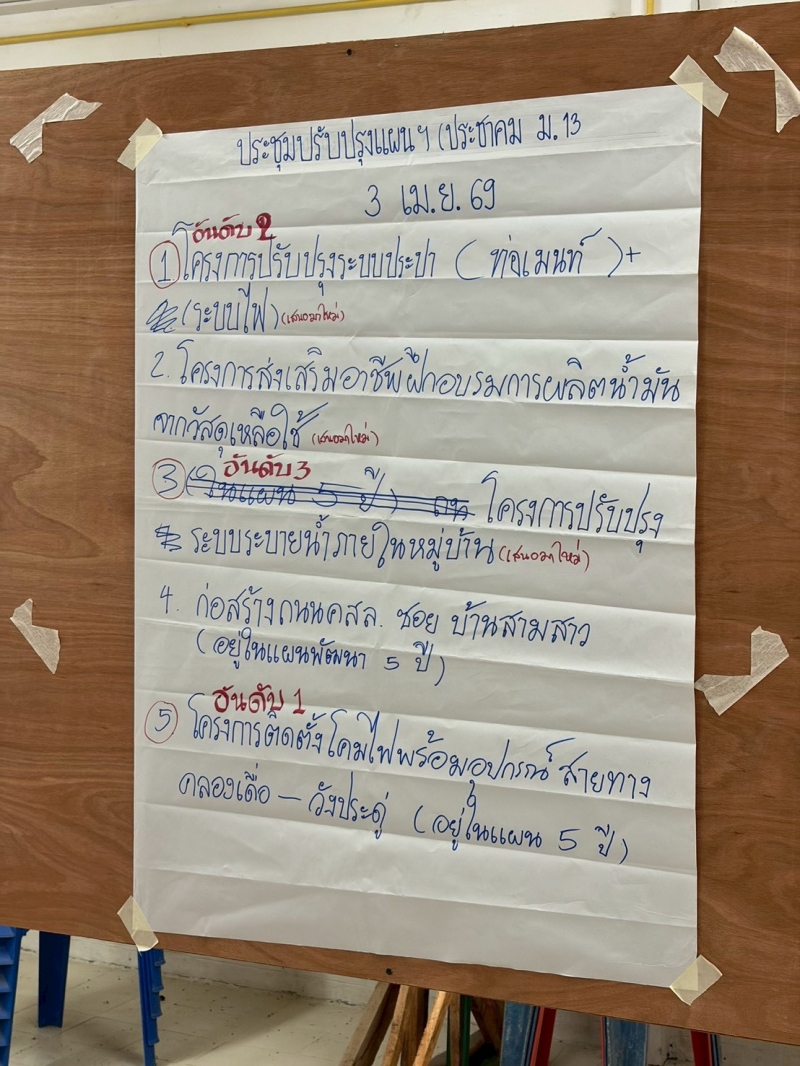 ประชุมปรับปรุงแผนฯ (ประชาคม ม.13
3 เม.ย. 69
อันดับ 2
① โครงการปรับปรุงระบบประปา (ท่อเมนท์) +
(ระบบไฟ) (เสนอมาใหม่)
2. โครงการส่งเสริมอาชีพฝึกอบรมการผลิตน้ำมัน
จากวัสดุเหลือใช้ (เสนอมาใหม่)
อันดับ 3
③ (ในแผน 5 ปี) ถน โครงการปรับปรุง
ระบบระบายน้ำภายในหมู่บ้าน (เสนอมาใหม่)
4. ก่อสร้างถนนคสล. ซอย บ้านสามสาว
(อยู่ในแผนพัฒนา 5 ปี)
อันดับ 1
⑤ โครงการติดตั้งโคมไฟพร้อมอุปกรณ์ สายทาง
คลองเดื่อ – วังประดู่ (อยู่ในแผน 5 ปี)